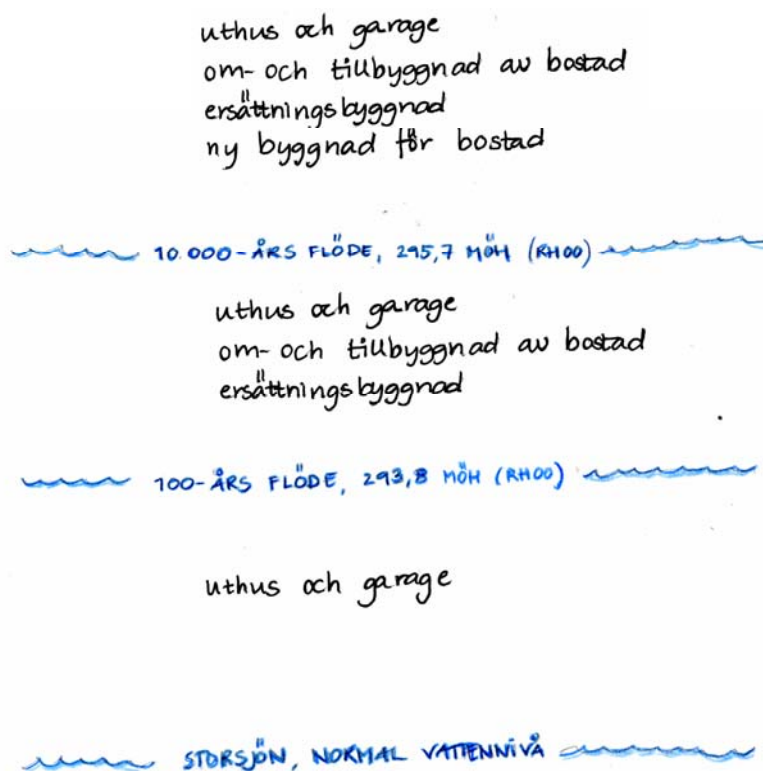 uthus och garage
om- och tillbyggnad av bostad
ersättningsbyggnad
ny byggnad för bostad
10.000-ÅRS FLÖDE, 295,7 MÖH (RH00)
uthus och garage
om- och tillbyggnad av bostad
ersättningsbyggnad
100-ÅRS FLÖDE, 293,8 MÖH (RH00)
uthus och garage
STORSJÖN, NORMAL VATTENNIVÅ